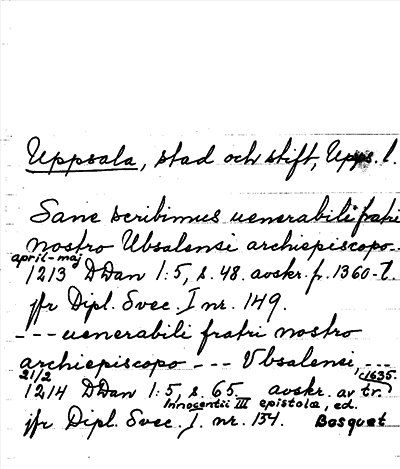 Uppsala, stad och stift, Upps. l.
Sane scribimus uenerabili fratri
nostro Ubsalensi archiepiscopo
april-maj
1213 DDan 1:5, s. 48. avskr. fr. 1360-t.
jfr Dipl. Svec. I nr. 149.
--- uenerabili fratri nostro
archiepiscopo --- Vbsalensi, ---
21/2 1635.
1214 DDan 1:5, s. 65. avskr. av tr.
Innocentii III epistolæ, ed.
jfr Dipl. Svec. I. nr. 154. Bosquet